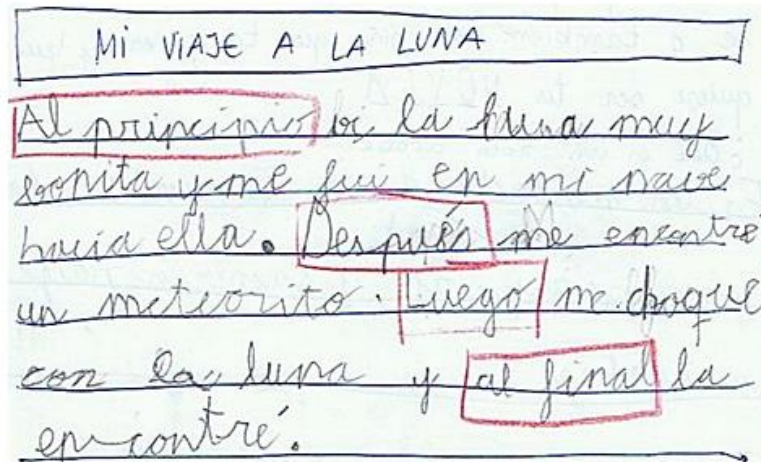 MI VIAJE A LA LUNA
Al principio bi la luna muy
bonita y me fui en mi nave
hacia ella. Después me encontré
un meteorito. Luego me choque
con la luna y al final la
encontré.